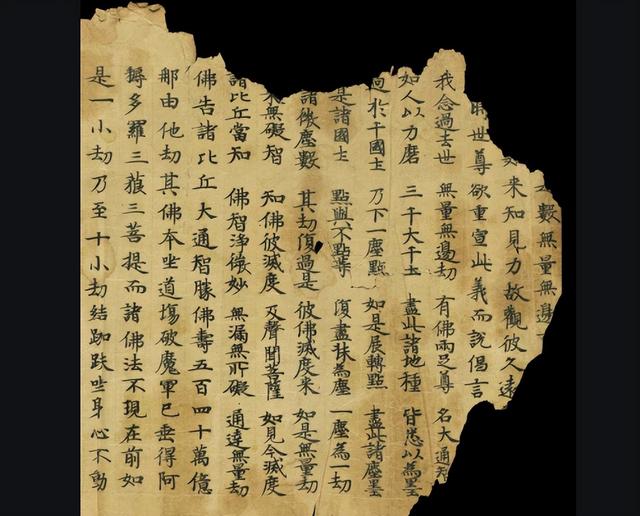 數無量無邊
如来知見力故觀彼久遠
時世尊欲重宣此義而說偈言
我念過去世 無量無邊劫 有佛兩足尊 名大通智
如人以力磨 三千大千土 盡此諸地種 皆悉以為墨
過於千國土 乃下一塵點 如是展轉點 盡此諸塵墨
是諸國土 點與不點等 復盡抹為塵 一塵為一劫
諸微塵數 其劫復過是 彼佛滅度来 如是無量劫
来無礙智 知佛彼滅度 及聲聞菩薩 如見今滅度
諸比丘當知 佛智淨微妙 無漏無所礙 通達無量劫
佛告諸比丘大通智勝佛壽五百四十萬億
那由他劫其佛本坐道場破魔軍已垂得阿
耨多羅三藐三菩提而諸佛法不現在前如
是一小劫乃至十小劫結跏趺坐身心不動